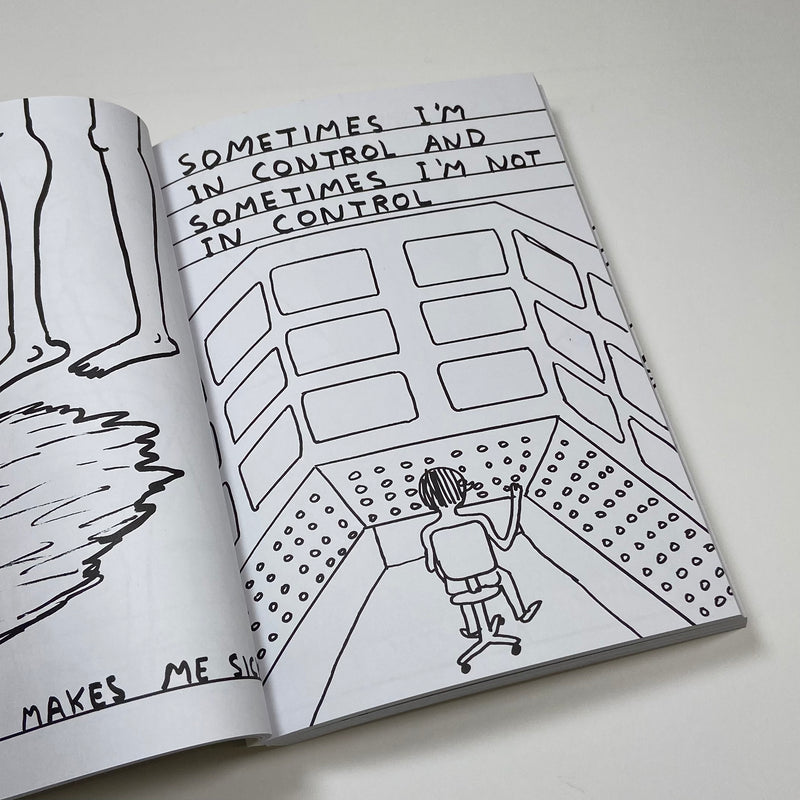 MAKES ME
SOMETIMES I'M
IN CONTROL AND
SOMETIMES I'M NOT
IN CONTROL